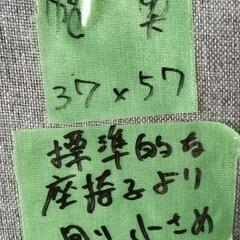 37×57
標準的な
座椅子より
小さめ